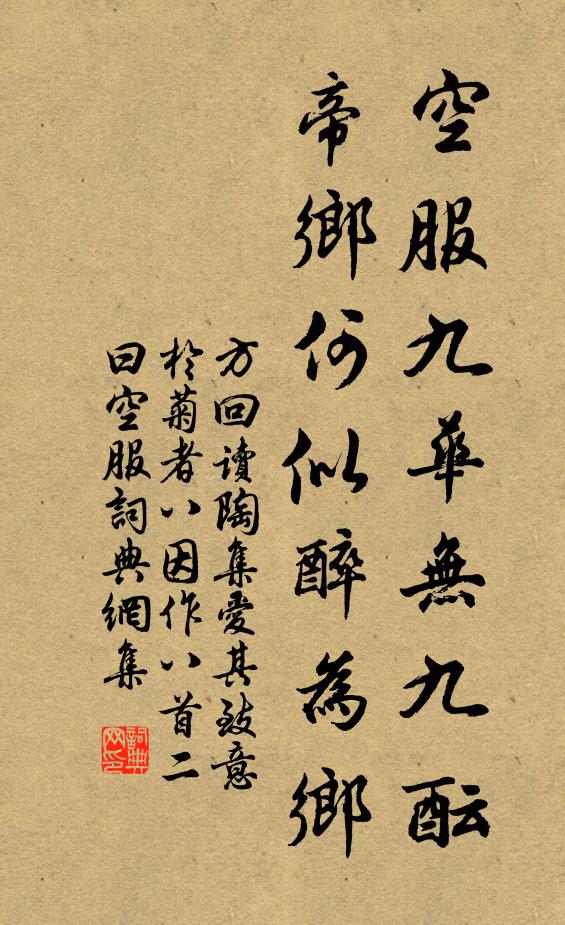 空服九華無九酝
帝鄉何似醉為鄉
方回讀陶集愛其致意
於菊者八因作八首二
曰空服詞典網集
詞典網印